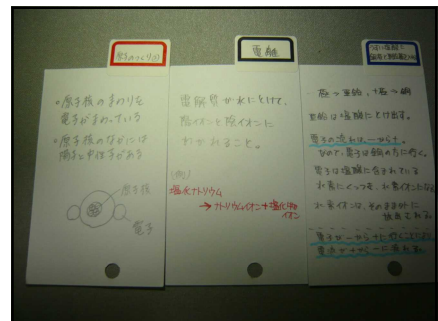 原子のつくり
・原子核のまわりを
電子がまわっている
・原子核のなかには
陽子と中性子がある
原子核
電子
電離
電解質が水にとけて、
陽イオンと陰イオンに
わかれること。
(例)
塩化ナトリウム
→ナトリウムイオン+塩化物
イオン
-極→亜鉛、+極→銅
亜鉛は塩酸にとけ出す。
電子の流れは、-から+。
なので、電子は銅の方に行く。
電子は塩酸に含まれている
水素にくっつき、
水素イオンは、そのまま
電子が-から+に
電流が+から-に流れる。